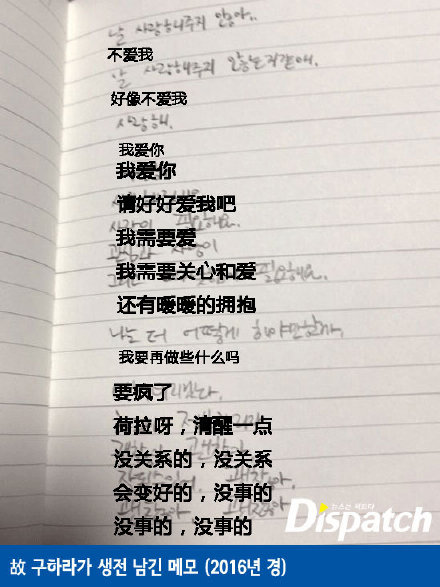 날 사랑해주지 않아..
不爱我
날 사랑해주지
好像不爱我
사랑해.
我爱你
我爱你
请好好爱我吧
사랑이 필요해요.
我需要爱
我需要关心和爱
필요해요.
还有暖暖的拥抱
나는 더 어떻게 해야만할까.
我要再做些什么吗
要疯了
荷拉呀，清醒一点
没关系的，没关系
会变好的，没事的
没事的，没事的
뉴스는 팩트다
Dispatch
故 구하라가 생전 남긴 메모 (2016년 경)